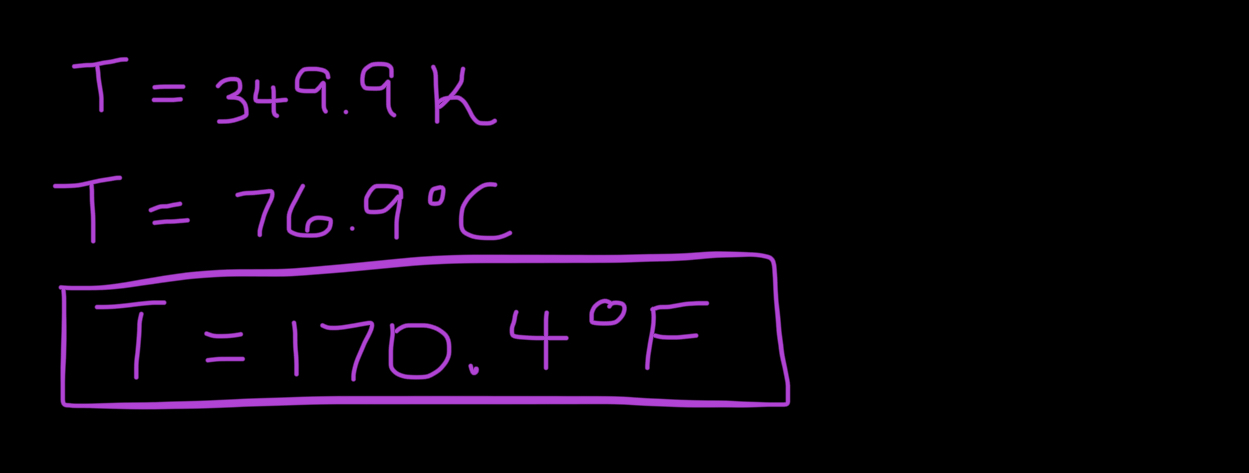 T = 349.9 K
T = 76.9°C
T = 170.4°F